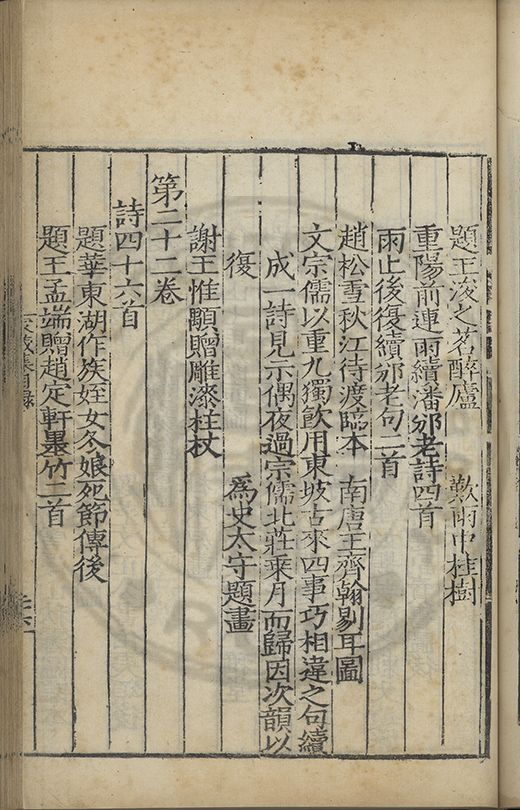 題王浚之茗醉廬 歎雨中桂樹
重陽前連雨續潘邠老詩四首
雨止後復續邠老句二首
趙松雪秋江待渡臨本 南唐王齊翰剔耳圖
文宗儒以重九獨飲用東坡古來四事巧相違之句續
成一詩見示偶夜過宗儒北莊乘月而歸因次韻以
復 為史太守題畫
謝王惟顒贈雕漆柱杖
第二十二卷
詩四十六首
題華東湖作族姪女冬娘死節傳後
題王孟端贈趙定軒墨竹二首
家藏集目錄